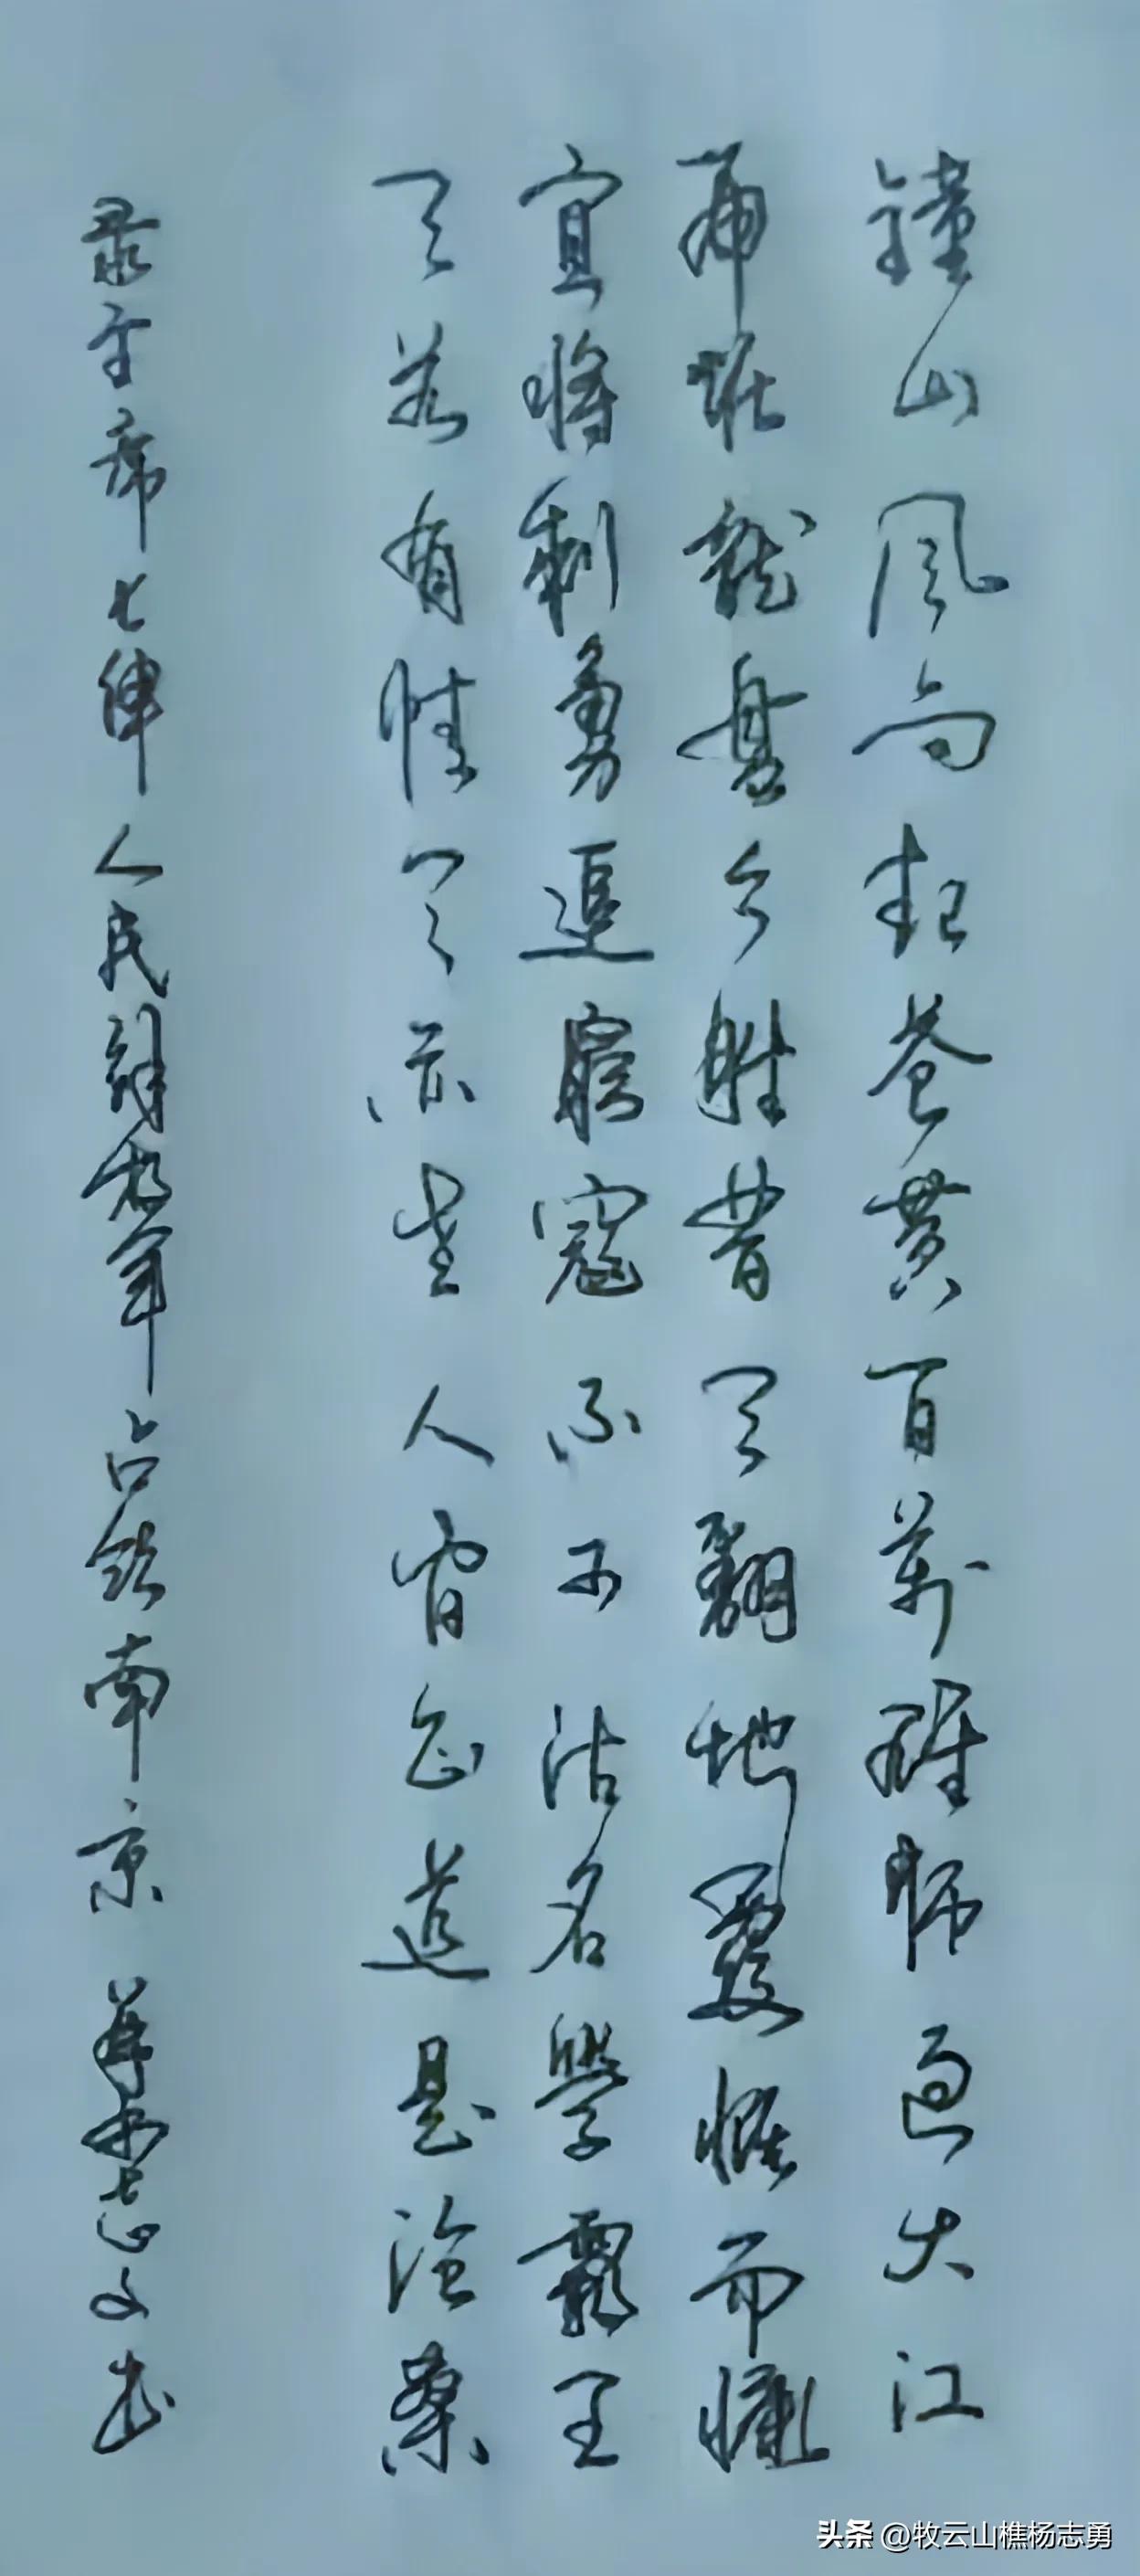 鐘山风雨起苍黄百萬雄师过大江
虎踞龍盘今胜昔天翻地覆慨而慷
宜将剩勇追窮寇不可沽名學霸王
天若有情天亦老人间正道是沧桑
录主席七律人民解放军占领南京 文书
头条 @牧云山樵杨志勇